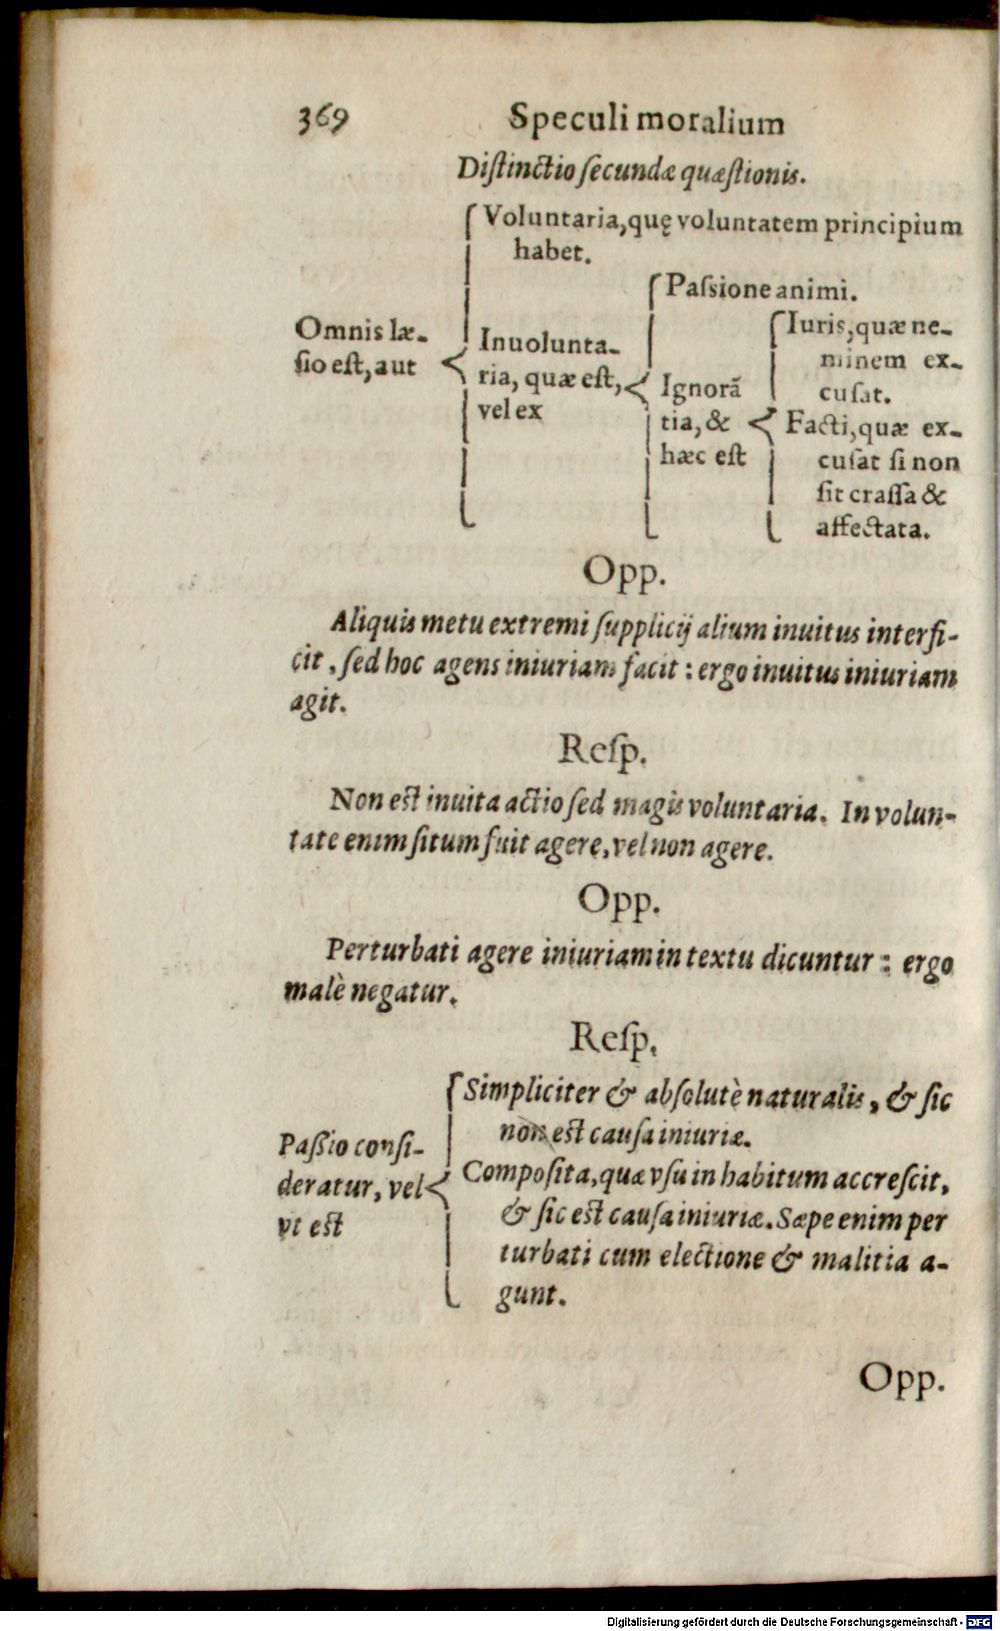 369 Speculi moralium
Distinctio secundæ quæstionis.
Voluntaria, quę voluntatem principium
habet.
Omnis læ-
sio est, aut
Inuolunta-
ria, quæ est,
vel ex
Passione animi.
Ignorã
tia, &
hæc est
Iuris, quæ ne-
minem ex-
cusat.
Facti, quæ ex-
cusat si non
sit crassa &
affectata.
Opp.
Aliquis metu extremi supplicij alium inuitus interfi-
cit, sed hoc agens iniuriam facit: ergo inuitus iniuriam
agit.
Resp.
Non est inuita actio sed magis voluntaria. In volun-
tate enim situm fuit agere, vel non agere.
Opp.
Perturbati agere iniuriam in textu dicuntur: ergo
malè negatur.
Resp.
Passio consi-
deratur, vel
vt est
Simpliciter & absolutè naturalis, & sic
non est causa iniuriæ.
Composita, quæ vsu in habitum accrescit,
& sic est causa iniuriæ. Sæpe enim per
turbati cum electione & malitia a-
gunt.
Opp.
Digitalisierung gefördert durch die Deutsche Forschungsgemeinschaft - DFG